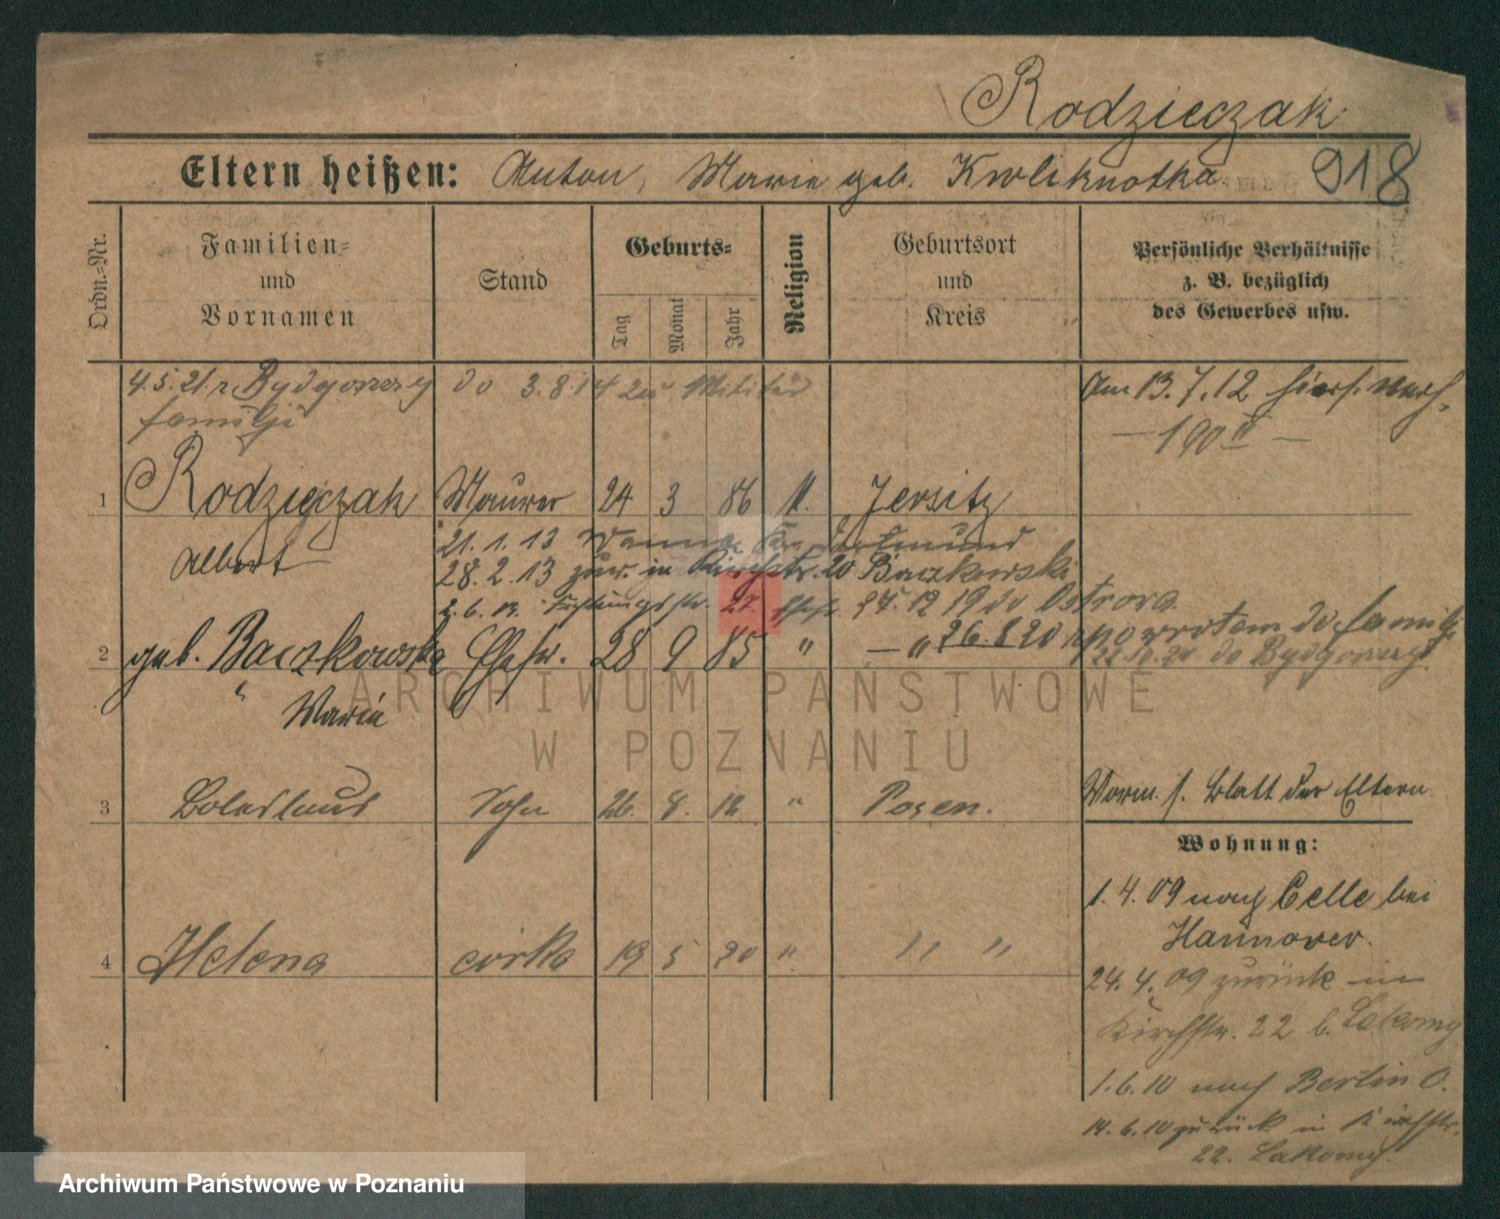 Rodzieczak
Eltern heißen: Anton, Marie geb. 918
Ordn.-Nr.
Familien- und Vornamen
Stand
Geburts-
Tag
Monat
Jahr
Religion
Geburtsort und Kreis
Persönliche Verhältnisse
z. B. bezüglich
des Gewerbes usw.
4.5.21 r Bydgoszczy do 3.8.14 zu Militär
familji
Am 13.7.12
190 II
1 Rodzieczak Maurer 24 3 86 Jersitz
Albert
21.1.13
28.2.13 zur. in Kirchstr. 20 Baczkowski
27. 19 do Ostrova
26.8.20 r powrotem do familji
2 geb. Baczkowska Ehefr. 28 9 85 " — "
do Bydgoszczy
" Marie
3 Boleslaus Sohn 26. 12 " Posen.
Vorm. s. Blatt der Eltern
Wohnung:
1.4.09 nach Celle bei
Hannover.
4 Helena corka 19 5 20 " " "
24.4.09 zurück in
Kirchstr. 22 b. Lakomy
1.6.10 nach Berlin O.
14.6.10 zurück in Kirchstr.
22. Lakomy.
ARCHIWUM PAŃSTWOWE
W POZNANIU
Archiwum Państwowe w Poznaniu